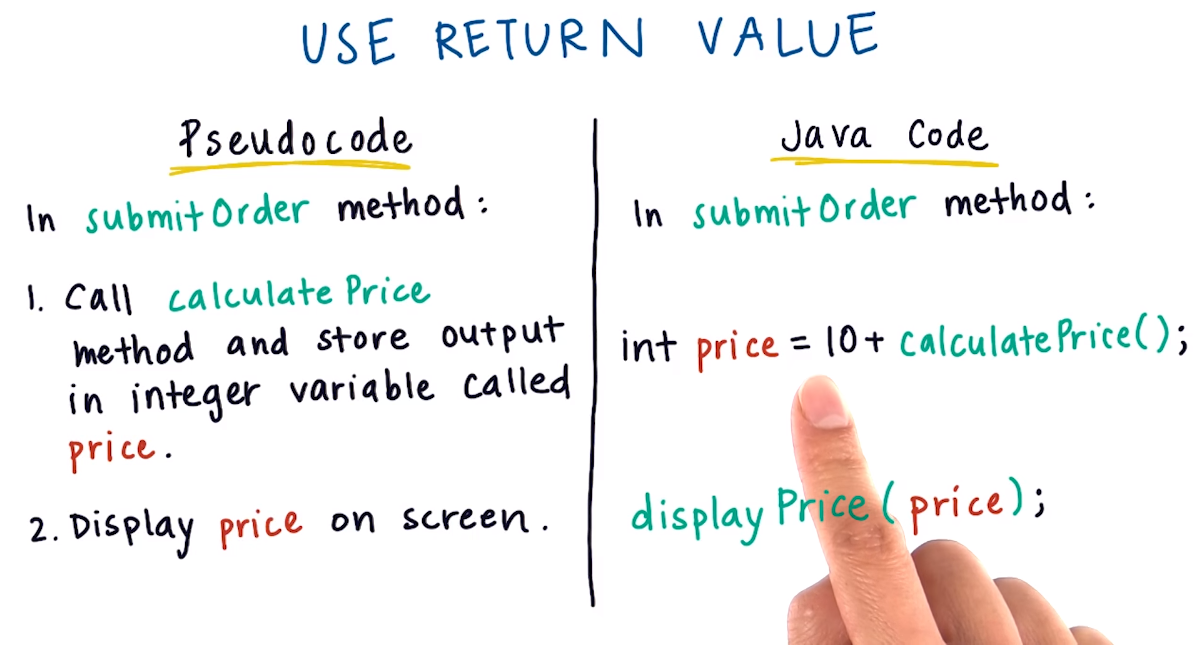 USE RETURN VALUE
Pseudocode
In submitOrder method:
1. Call calculatePrice
method and store output
in integer variable called
price.
2. Display price on screen.
Java Code
In submitOrder method:
int price = 10 + calculatePrice();
displayPrice(price);